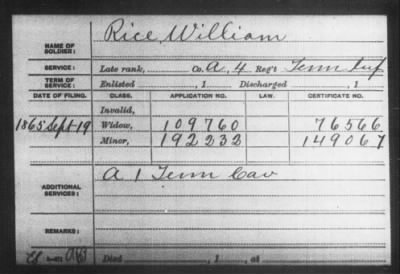 Rice, William
NAME OF SOLDIER:
SERVICE: Late rank, Co. A, 4 Reg't Tenn Inf
TERM OF SERVICE: Enlisted , 1 Discharged , 1
DATE OF FILING. CLASS. APPLICATION NO. LAW. CERTIFICATE NO.
Invalid,
1865 Sept 19 Widow, 109760 76566
Minor, 192232 149067
A 1 Tenn Cav
ADDITIONAL SERVICES:
REMARKS:
Died , 1 , at